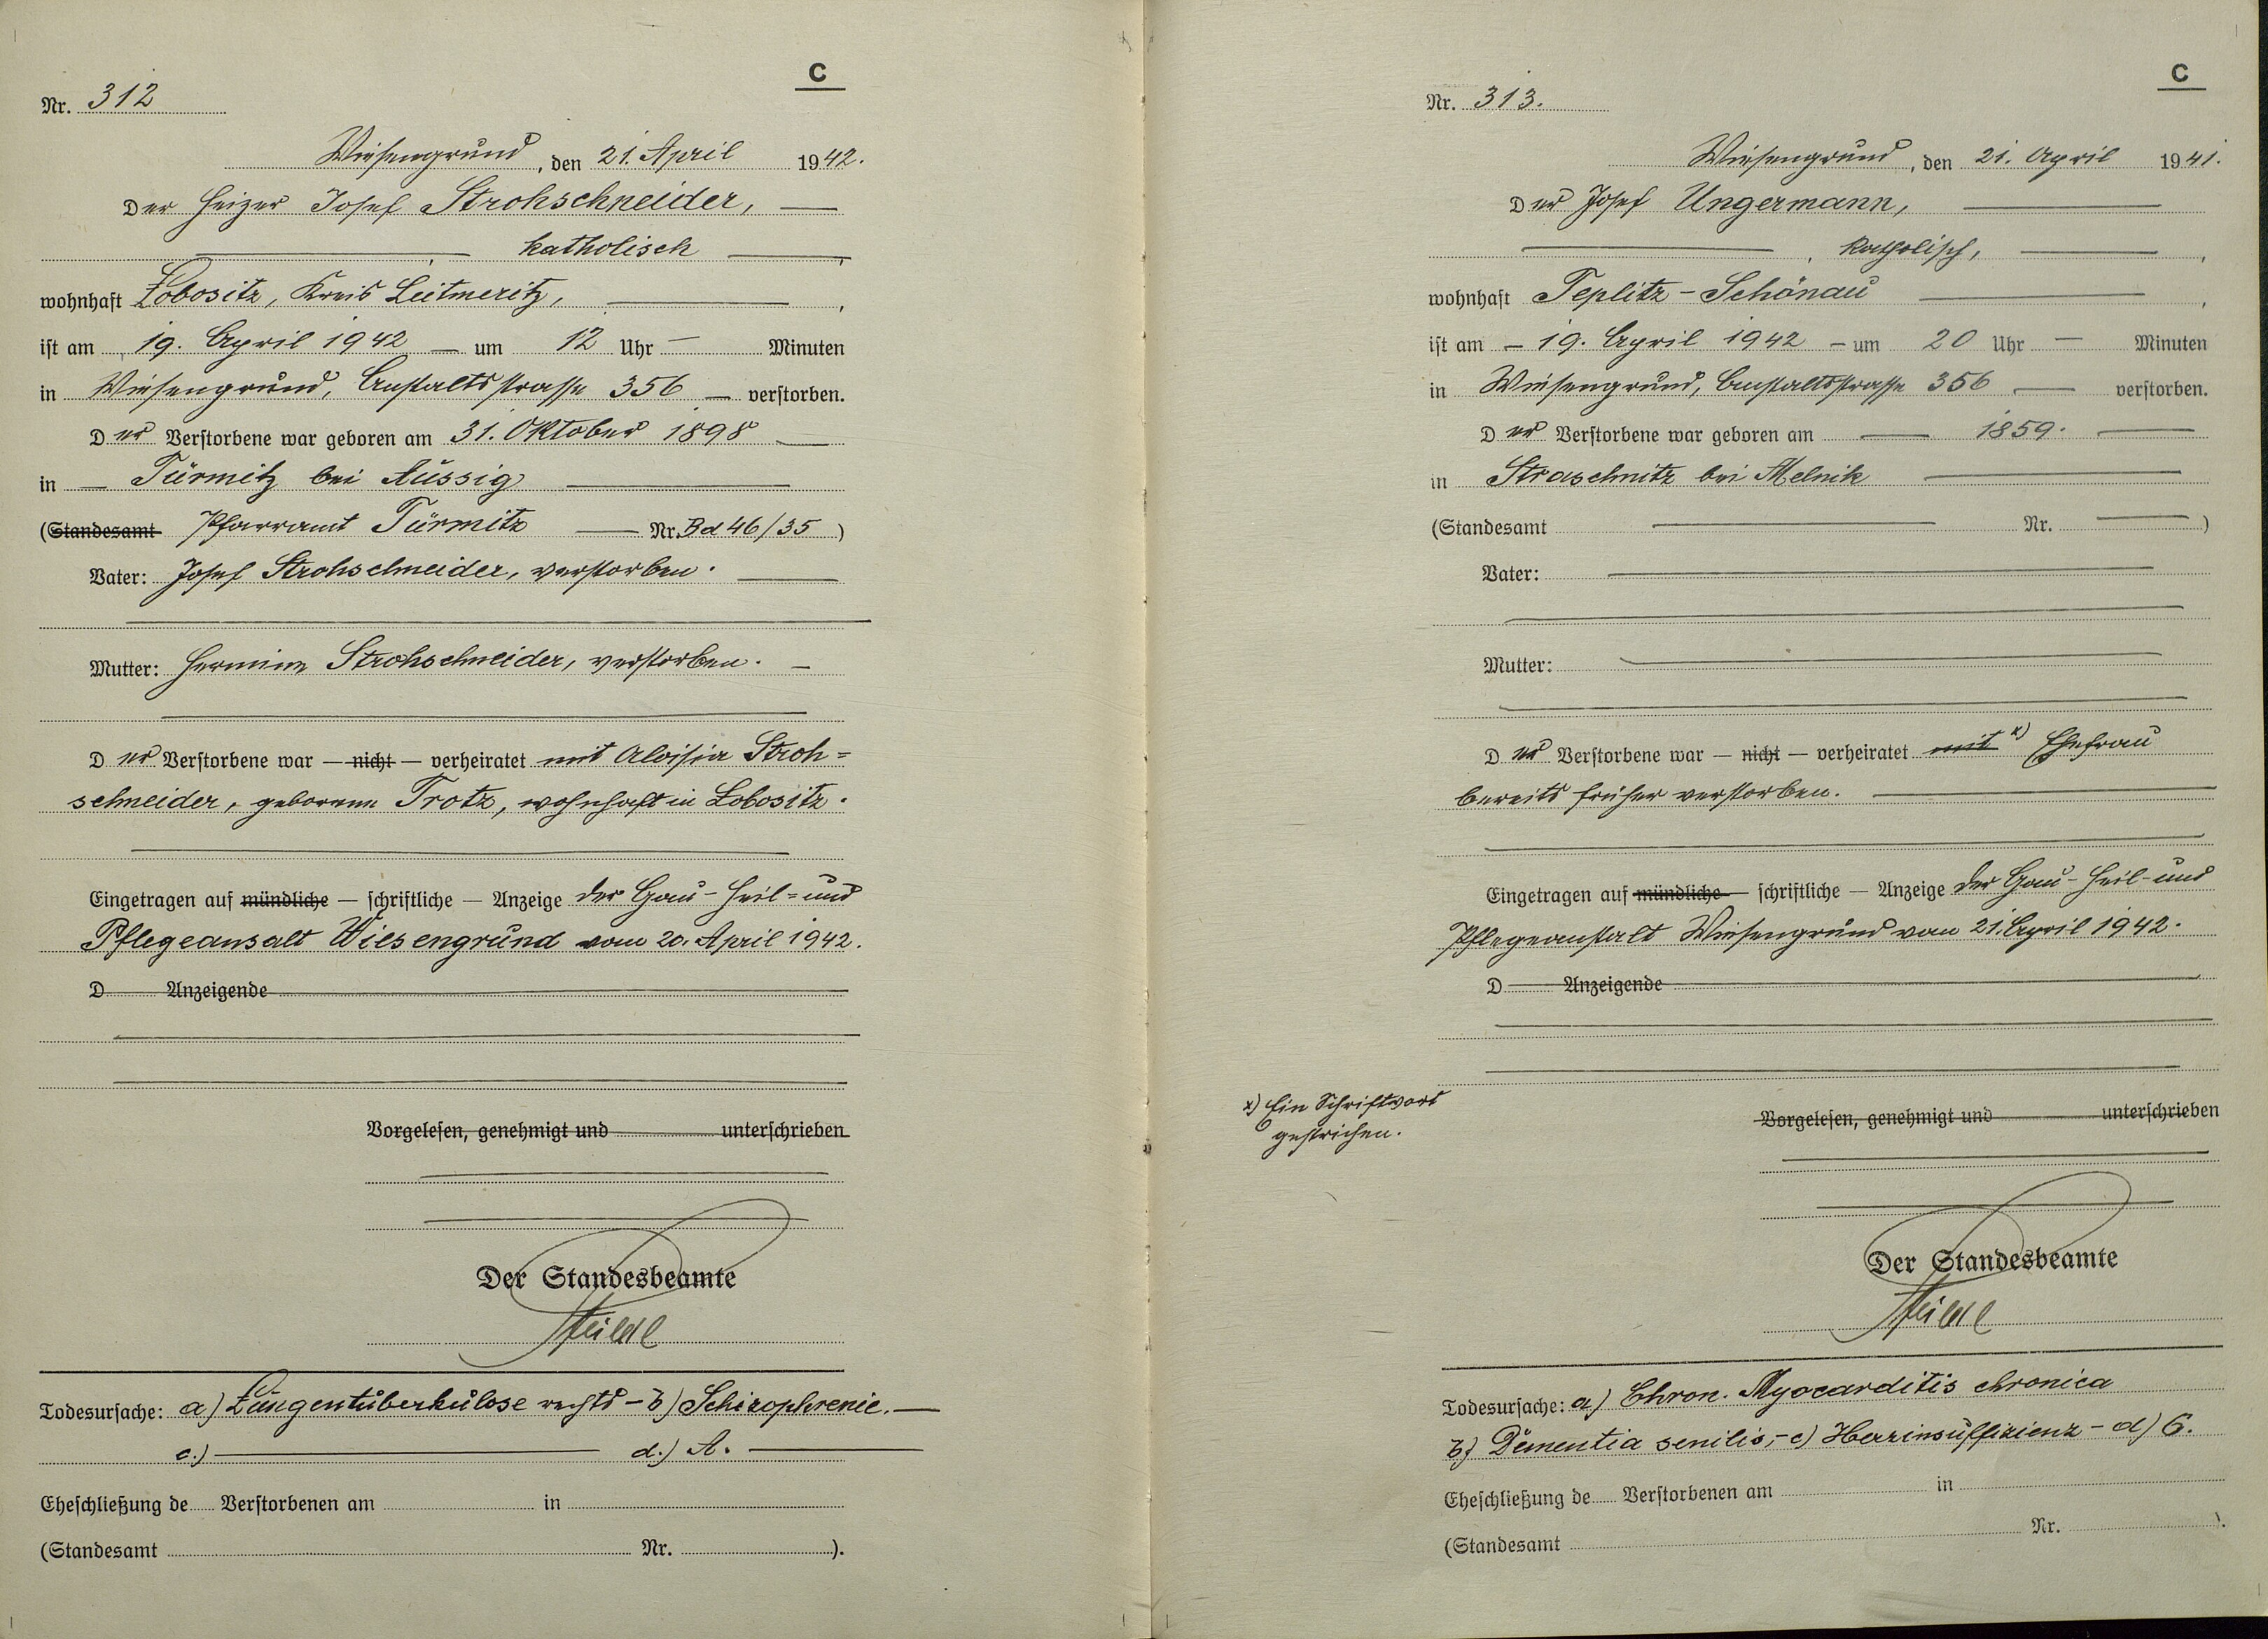 C
Nr. 312
Wiesengrund, den 21. April 1942.
Der Heizer Josef Strohschneider, —
— katholisch —,
wohnhaft Lobositz, Kreis Leitmeritz, —,
ist am 19. April 1942 — um 12 Uhr — Minuten
in Wiesengrund, Anstaltsstrasse 356 — verstorben.
Der Verstorbene war geboren am 31. Oktober 1898 —
in — Türmitz bei Aussig —
(Standesamt Pfarramt Türmitz — Nr. Bd 46/35 )
Vater: Josef Strohschneider, verstorben. —
Mutter: Hermine Strohschneider, verstorben. —
Der Verstorbene war — nicht — verheiratet mit Aloisia Stroh=
schneider, geborene Trotz, wohnhaft in Lobositz.
Eingetragen auf mündliche — schriftliche — Anzeige der Gau-Heil= und
Pflegeansalt Wiesengrund vom 20. April 1942.
D Anzeigende
Vorgelesen, genehmigt und unterschrieben
Der Standesbeamte
Todesursache: a) Lungentuberkulose rechts - b) Schizophrenie. —
c.) — d.) A. —
Eheschließung de Verstorbenen am in
(Standesamt Nr. ).
C
Nr. 313.
Wiesengrund, den 21. April 1941.
Der Josef Ungermann, —
—, katholisch, —,
wohnhaft Teplitz-Schönau —,
ist am - 19. April 1942 - um 20 Uhr — Minuten
in Wiesengrund, Anstaltsstrasse 356 — verstorben.
Der Verstorbene war geboren am — 1859. —
in Straschnitz bei Melnik —
(Standesamt — Nr. — )
Vater: —
Mutter: —
Der Verstorbene war — nicht — verheiratet mit x) Ehefrau
bereits früher verstorben. —
Eingetragen auf mündliche — schriftliche — Anzeige der Gau-Heil-und
Pflegeanstalt Wiesengrund vom 21. April 1942.
D Anzeigende
x) Ein Schriftwort
gestrichen.
Vorgelesen, genehmigt und unterschrieben
Der Standesbeamte
Todesursache: a) Chron. Myocarditis chronica
b) Dementia senilis, - c) Herzinsuffizienz - d) 6.
Eheschließung de Verstorbenen am in
(Standesamt Nr. ).